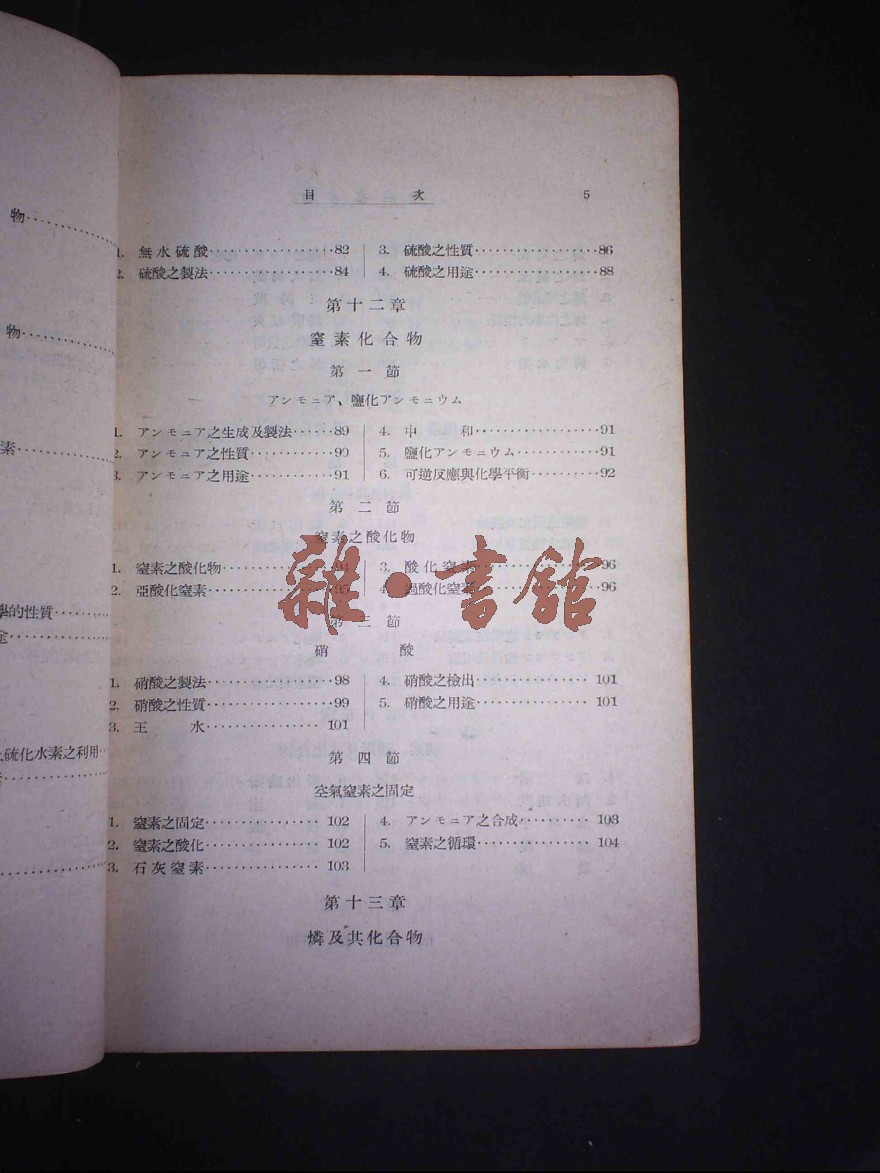 物
物
素
學的性質
途
硫化水素之利用
目 次 5
1. 無水硫酸 82 3. 硫酸之性質 86
2. 硫酸之製法 84 4. 硫酸之用途 88
第十二章
窒素化合物
第一節
アンモニア、鹽化アンモニウム
1. アンモニア之生成及製法 89 4. 中 和 91
2. アンモニア之性質 90 5. 鹽化アンモニウム 91
3. アンモニア之用途 91 6. 可逆反應與化學平衡 92
第二節
窒素之酸化物
1. 窒素之酸化物 94 3. 酸化窒素 96
2. 亞酸化窒素 95 4. 過酸化窒素 96
雜·書館
第三節
硝 酸
1. 硝酸之製法 98 4. 硝酸之檢出 101
2. 硝酸之性質 99 5. 硝酸之用途 101
3. 王 水 101
第四節
空氣窒素之固定
1. 窒素之固定 102 4. アンモニア之合成 103
2. 窒素之酸化 102 5. 窒素之循環 104
3. 石灰窒素 103
第十三章
燐及其化合物